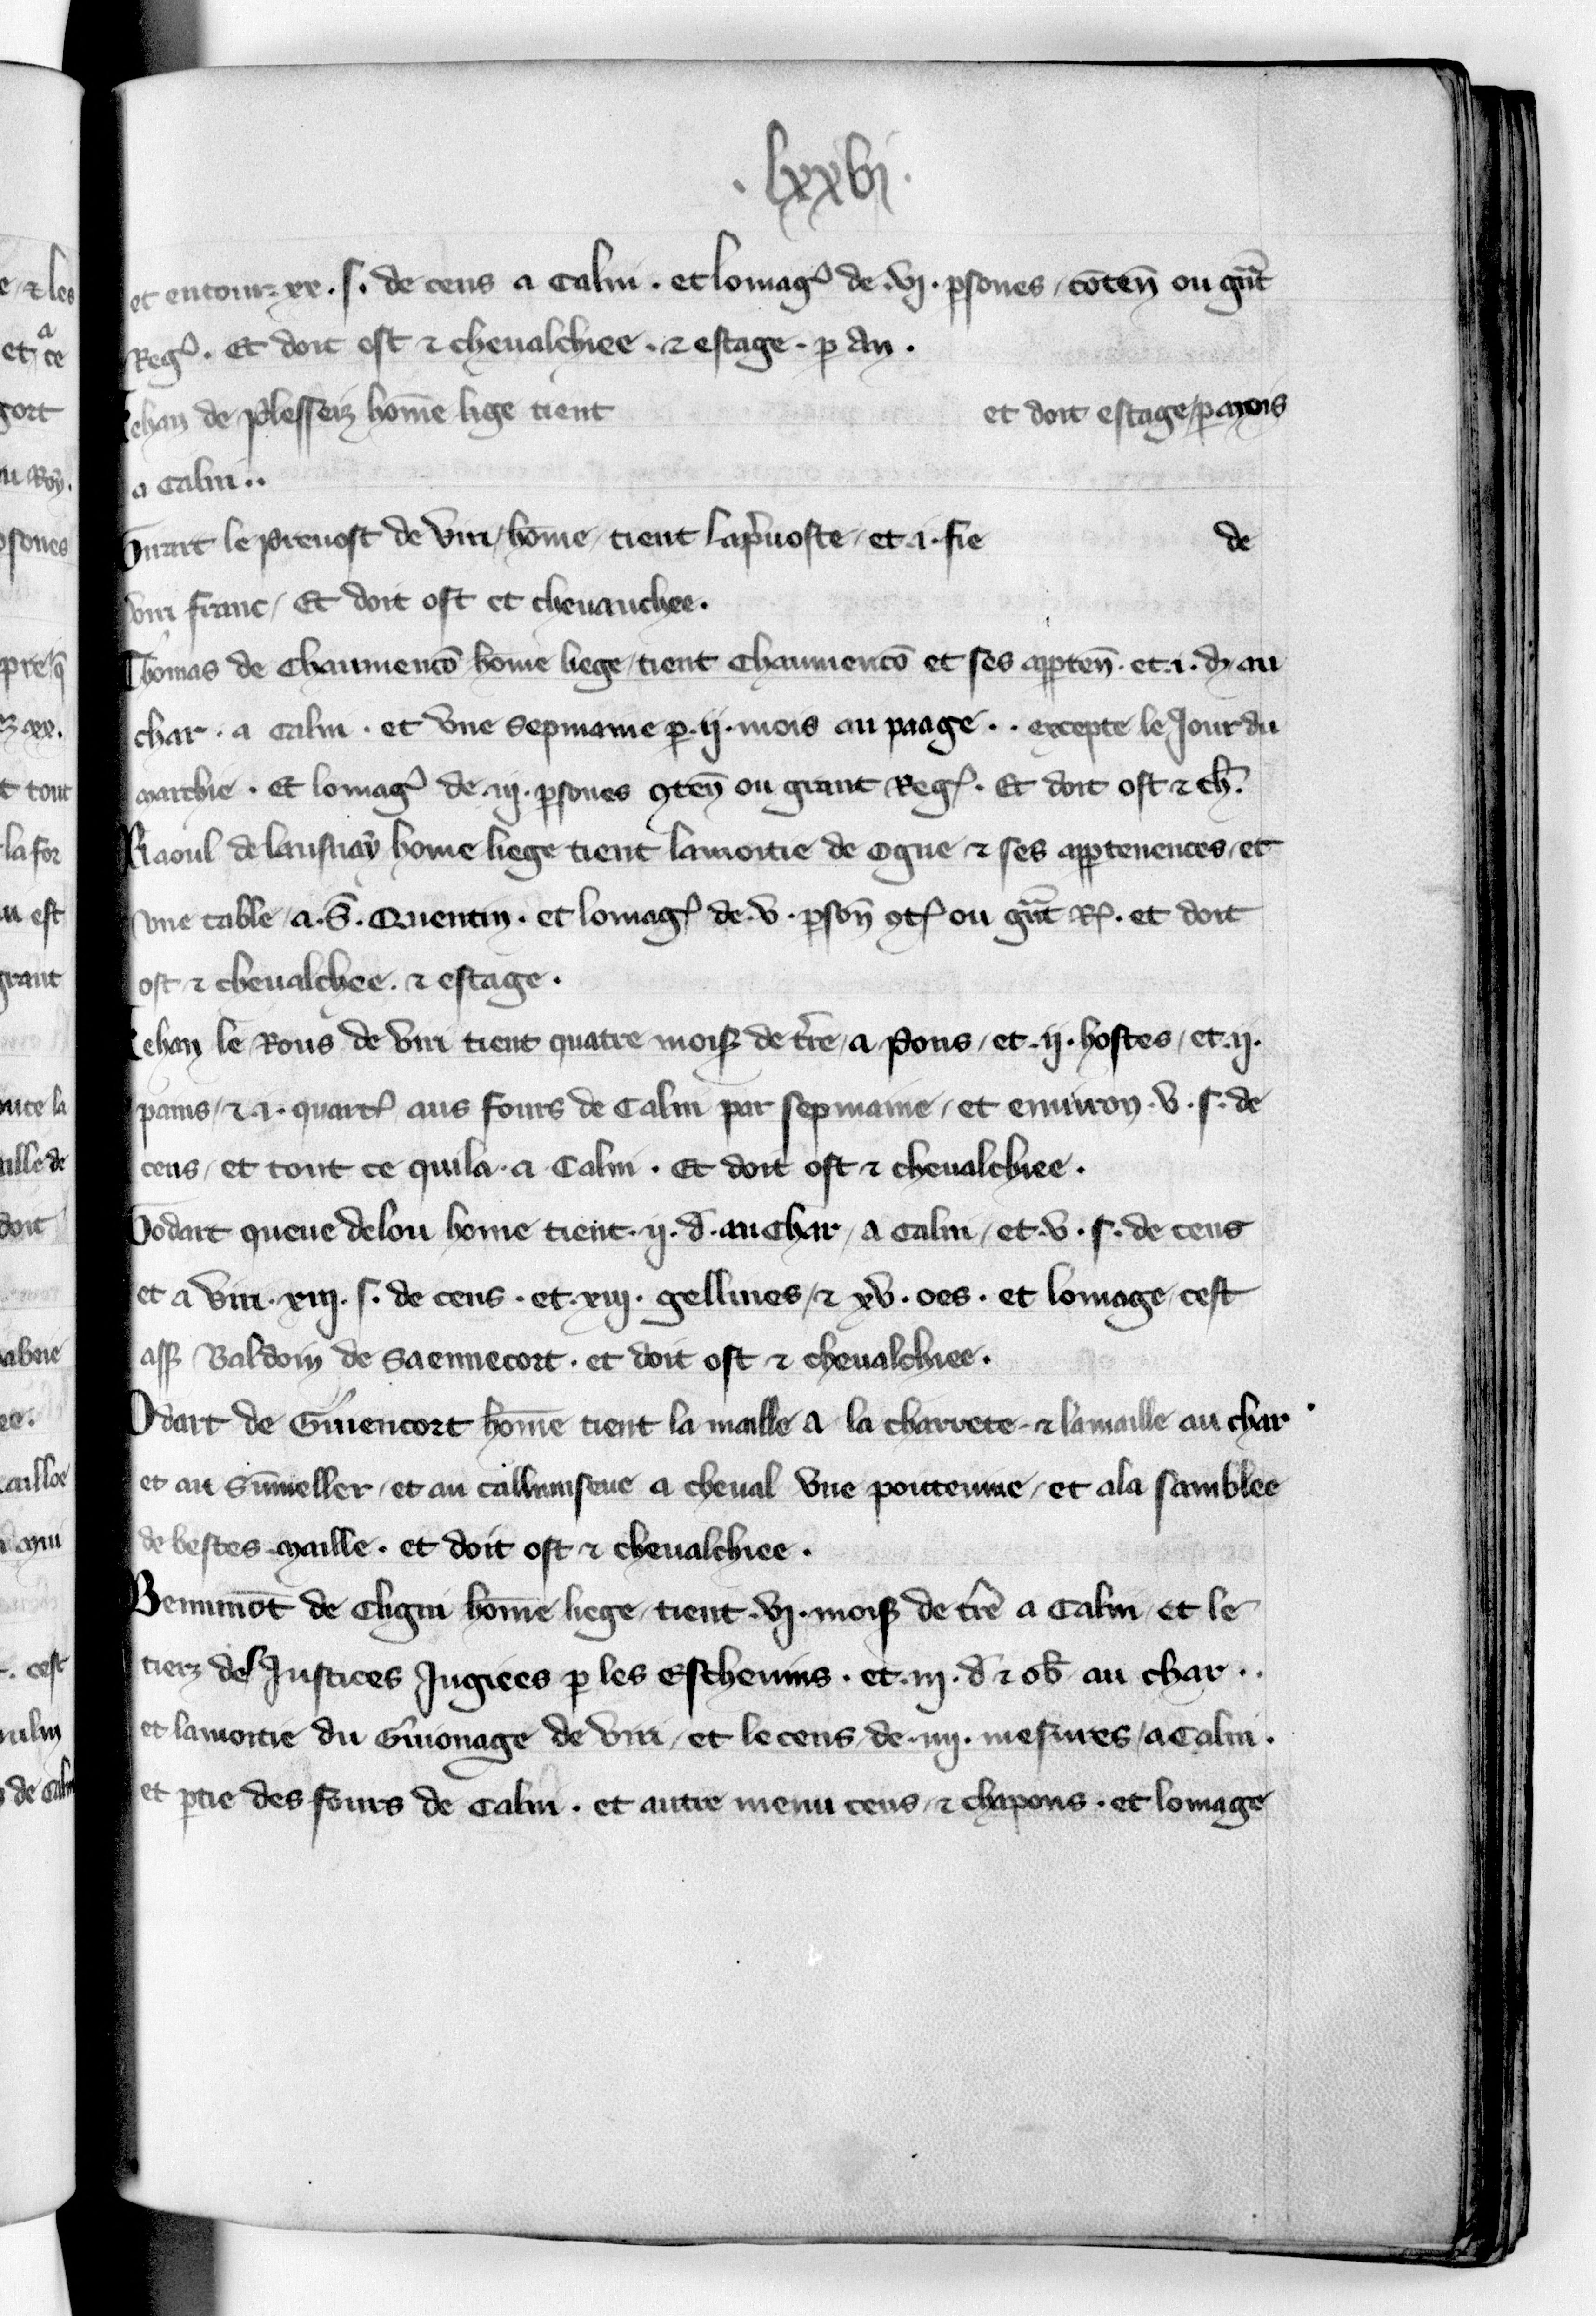 . lxxvi .
et entour xx . s . de cens a Calni . et lomag̉ de . vi . ꝑsones / cõten̄ ou gn̄t
Reg̉ . Et doit ost ⁊ cheualchiee . ⁊ estage . ꝑ An .
Jehan de Plesseiz home lige tient et doit estage / ꝑ mois
a Calni . .
Huart le Preuost de Viri / home / tient la p̉uoste / et . i . fie de
Viri franc / Et doit ost et cheuauchee .
Thomas de Chaumencõ home liege / tient Chaumencõ et ses apꝑten̄ . et . i . d̶ au
char . a Calni . et vne sepmaine ꝑ . ii . mois au paage . . excepte le Jour du
marchie . Et lomag̉ de . iii . ꝑsones ꝯten̄ ou grant Reg̉ . Et doit ost ⁊ ch̄ .
Raoul de lausnay home liege tient la moitie de Ogne ⁊ ses apꝑtenences / et
vne table / a . S̄ . Quentin . et lomag̉ de . v . ꝑson̄ ꝯt̉ ou gn̄t R̉ . et doit
ost ⁊ cheualchee . ⁊ estage .
Jehan le Rous de Viri tient quatre moiß de t̉re / a Pons / et . ii . hostes / et . ii .
pains / ⁊ . i . quart̉ aus fours de Calni par sepmaine / et enuiron . v . s . de
cens / et tout ce quila . a Calni . Et doit ost ⁊ cheualchiee .
Hodart queue de lou home tient . ii . d̄ . au Char / a Calni / et . v . s . de cens
et a Viri . xiii . s . de cens . et . xiii . gellines / ⁊ xv . oes . et lomage cest
asß Baldoin de Saennecort . et doit ost ⁊ cheualchiee .
Odart de Guiencort home tient la maille a la charrete - ⁊ la maille au char .
et au Sūmeller / et au a cheual vne poiteuine / et ala samblee
de bestes maille . et doit ost ⁊ cheualchiee .
de Cligni home liege / tient . vi . moiß de t̉re a Calni / et le
tierz des Justices Jugiees ꝑ les Escheuins . et . iii . d̄ ⁊ ob̄ au char . .
et la moitie du Guionage de Viri / et le cens / de . iiii . mesures / a Calni .
et ꝑtie des fours de Calni . et autre menu cens / ⁊ chapons . et lomage